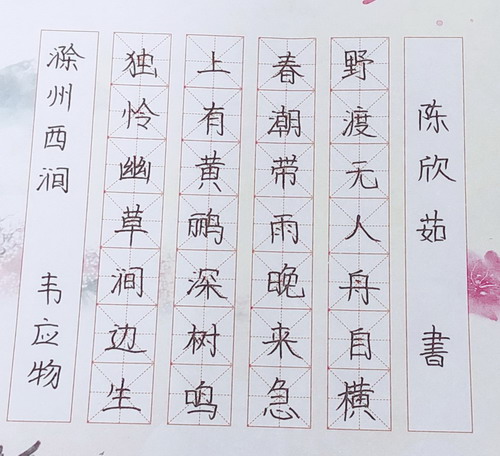 滁州西涧 韦应物
独怜幽草涧边生
上有黄鹂深树鸣
春潮带雨晚来急
野渡无人舟自横
陈欣茹 書